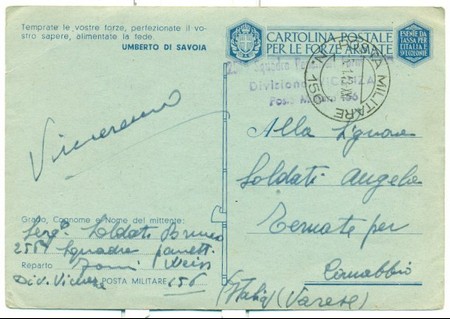 Temprate le vostre forze, perfezionate il vo-
stro sapere, alimentate la fede.
UMBERTO DI SAVOIA
Vinceremo
Grado, Cognome e Nome del mittente:
Serg. Soldati
256 Squadra panett.
Reparto Forni Weiss
Div. Vicenza POSTA MILITARE 156
CARTOLINA POSTALE
PER LE FORZE ARMATE
ESENTE DA
TASSA PER
L'ITALIA E
SUE COLONIE
POSTA MILITARE
N. 156
Squadra
Divisione VICENZA
Posta Militare 156
Alla Signora
Soldati Angela
Ternate per
Comabbio
(Italia) (Varese)